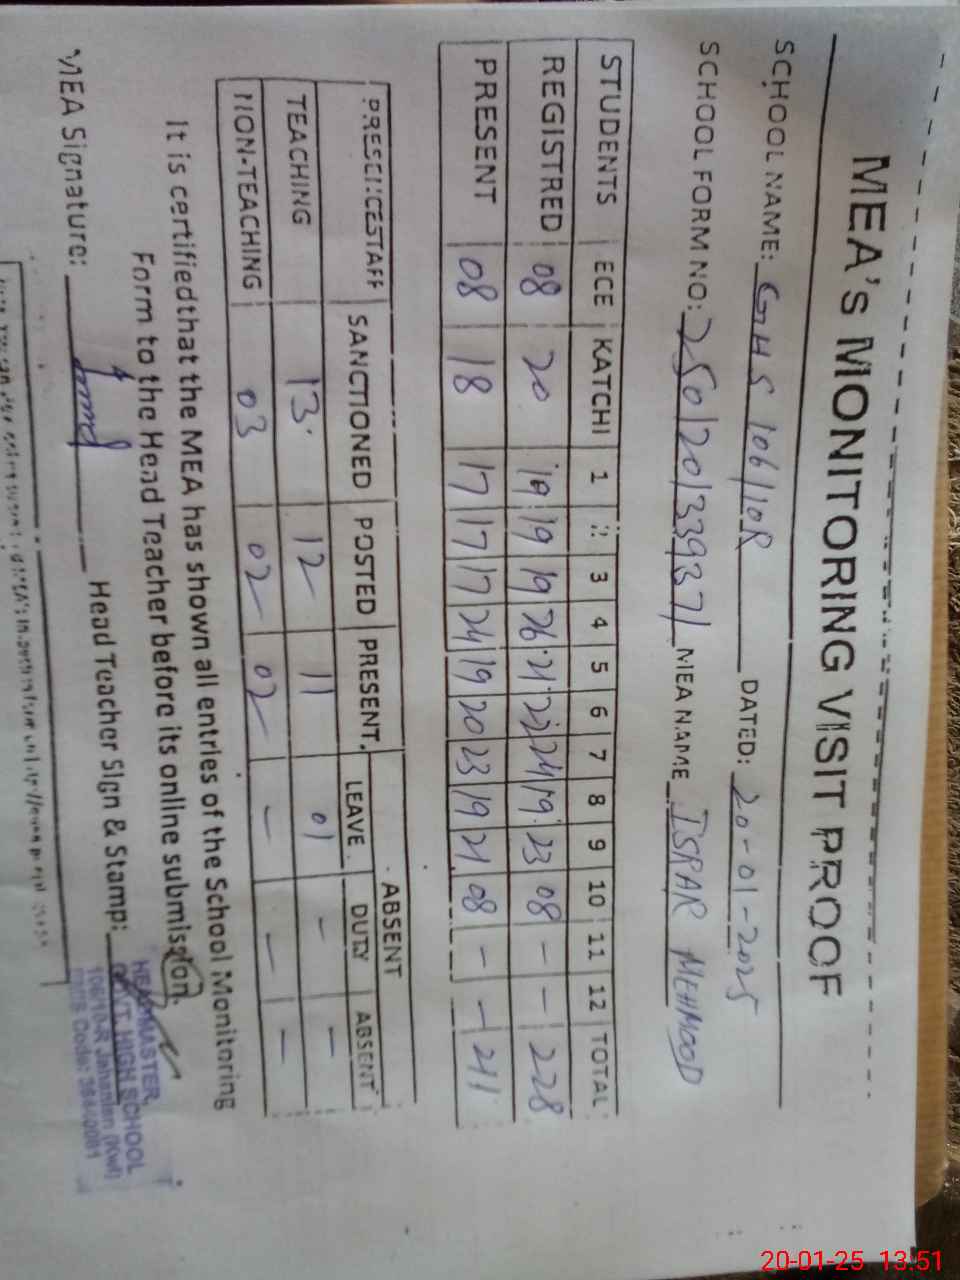 MEA's MONITORING VISIT PROOF
SCHOOL NAME: GHS 106/10R DATED: 20-01-2025
SCHOOL FORM NO: 250120133937 MEA NAME ISRAR MEHMOOD
STUDENTS ECE KATCHI 1 2 3 4 5 6 7 8 9 10 11 12 TOTAL
REGISTRED 08 20 19 19 19 26 21 22 24 19 23 08 - - 228
PRESENT 08 18 17 17 17 24 19 20 23 19 21 08 - - 211
PRESENCESTAFF SANCTIONED POSTED PRESENT ABSENT
LEAVE DUTY ABSENT
TEACHING 13 12 11 01 - -
NON-TEACHING 03 02 02 - - -
It is certifiedthat the MEA has shown all entries of the School Monitoring
Form to the Head Teacher before its online submission.
MEA Signature: Head Teacher Sign & Stamp:
HEADMASTER,
GOVT. HIGH SCHOOL
106/10-R Jahanian (Kwl)
20-01-25 13:51